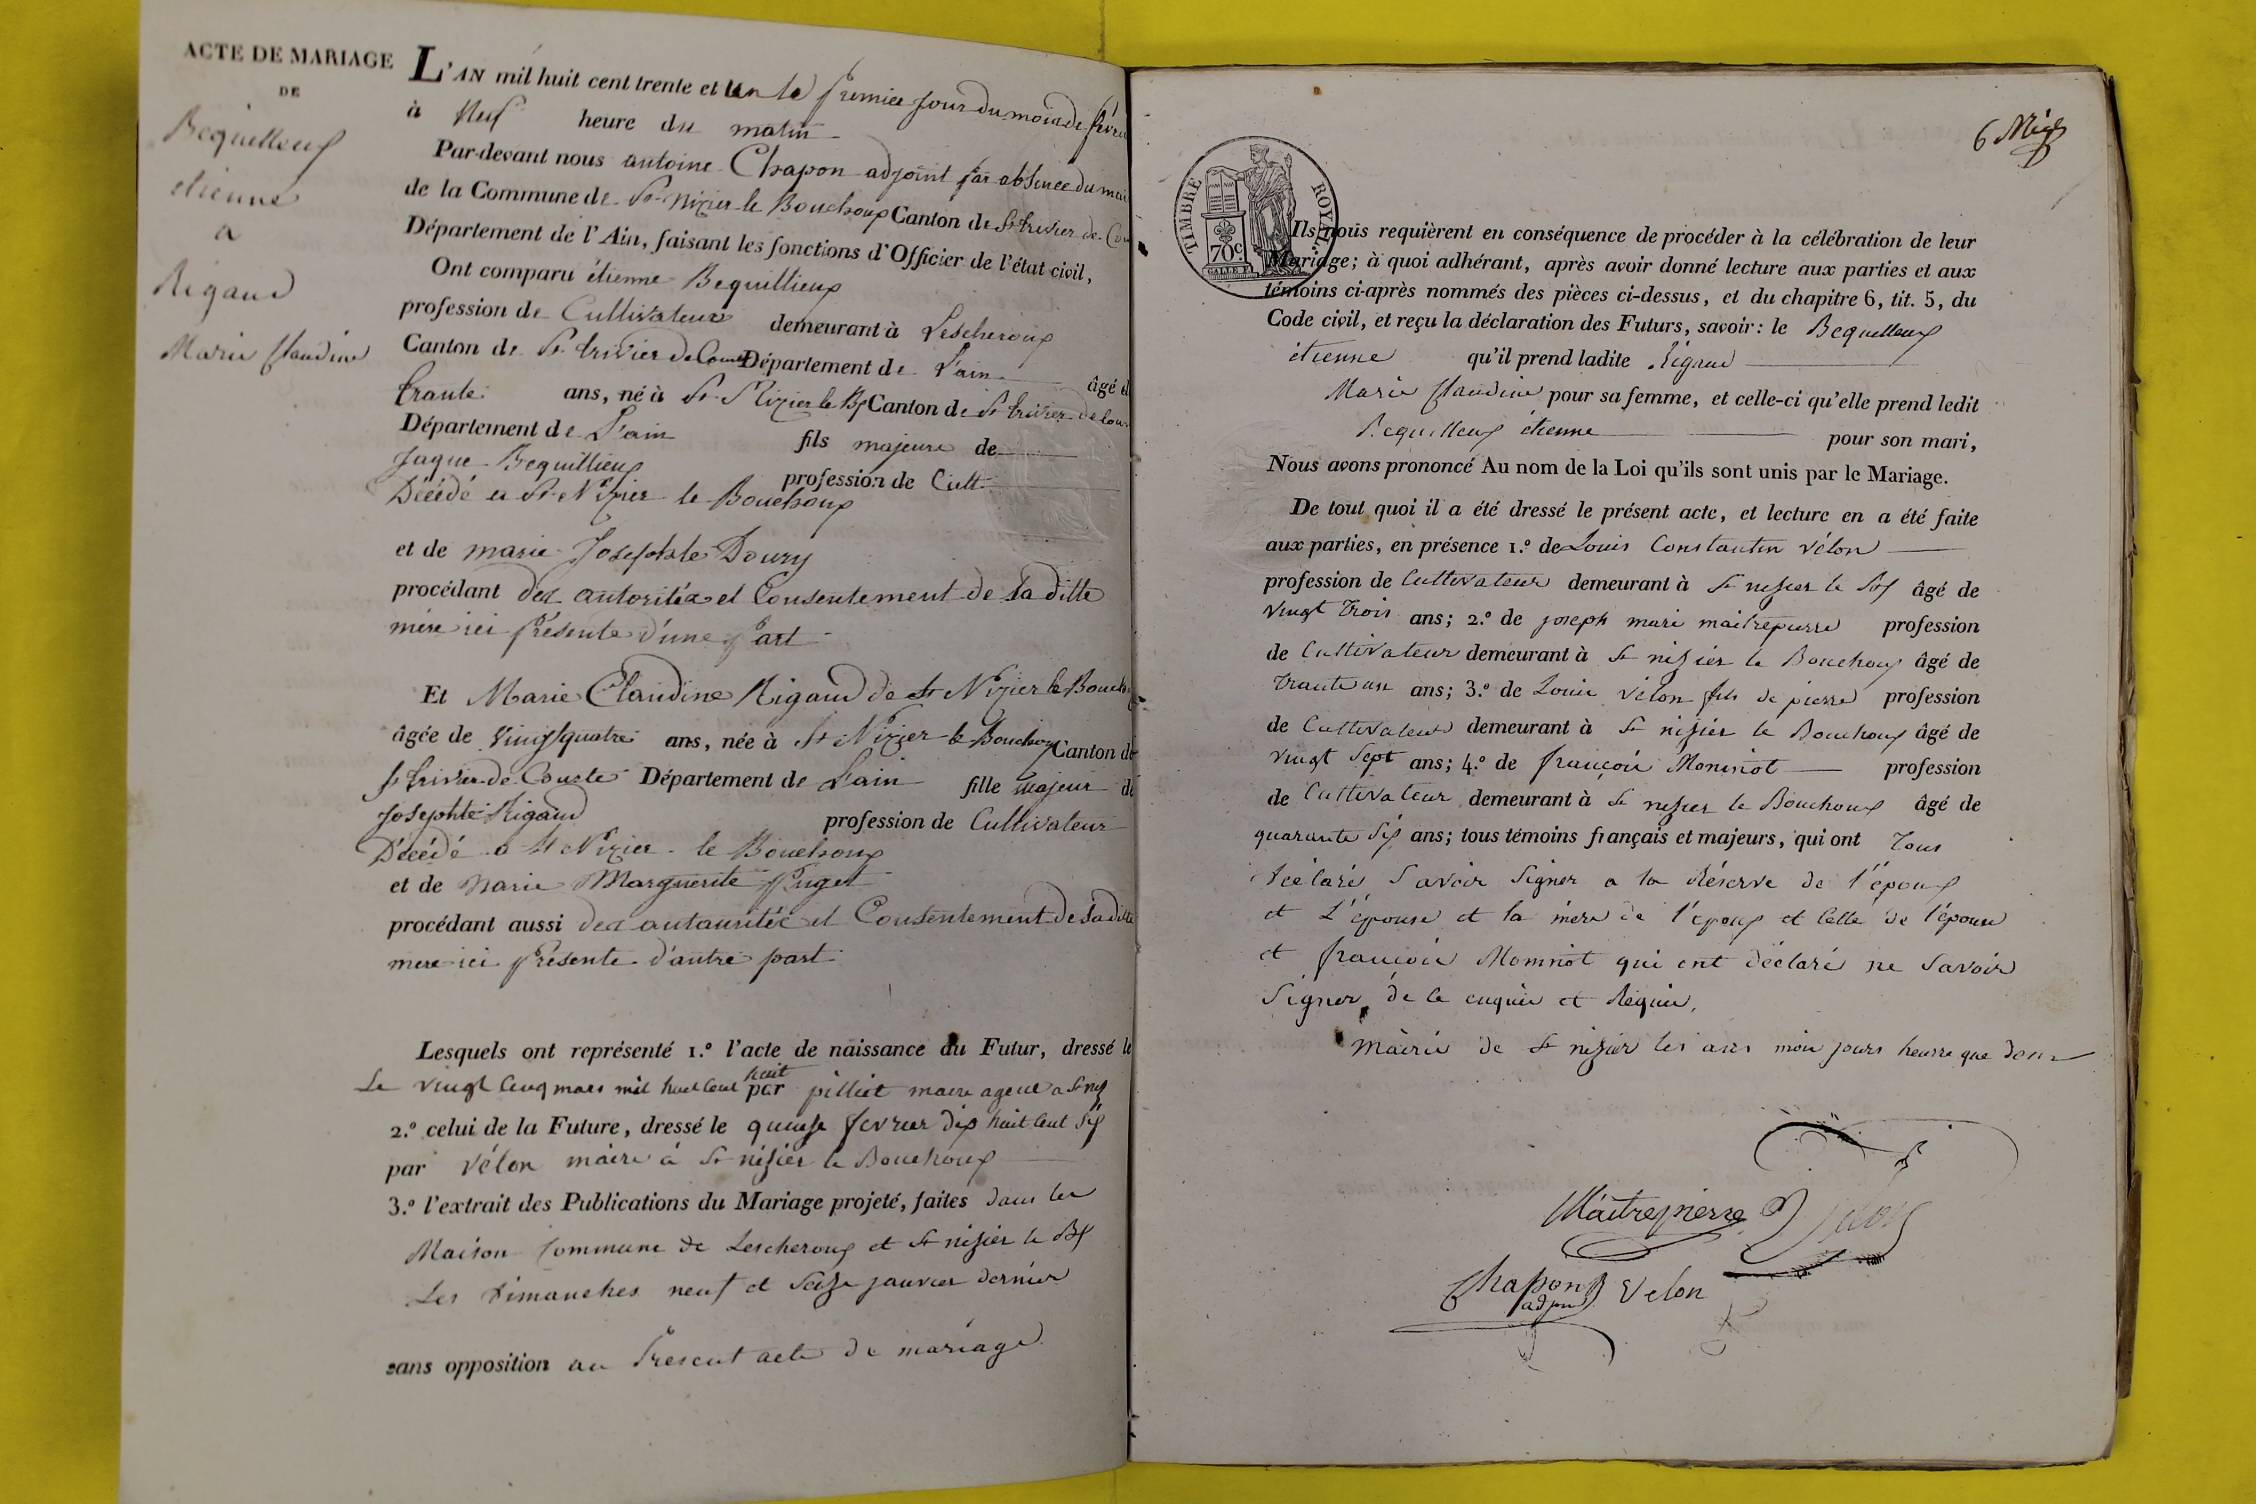 ACTE DE MARIAGE
DE
Bequilleux
etienne
a
Rigaud
Marie Claudine
L'AN mil huit cent trente et un le premier jour du mois de févri
à Neuf heure du matin
Par-devant nous antoine Chapon adjoint par absence du mai
de la Commune de St nizier le Bouchoux Canton de St trivier de Cou
Département de l'Ain, faisant les fonctions d'Officier de l'état civil,
Ont comparu étienne Bequillieux
profession de Cultivateur demeurant à Lescheroux
Canton de St trivier de Courte Département de L'ain âgé d
trante ans, né à St Nizier le Bx Canton de St trivier de Cour
Département de L'ain fils majeure de
Jaque Bequillieux profession de Cult
Décédé a St Nizier le Bouchoux
et de marie Josephte Doury
procédant des autoritéz et Consentement de sa ditte
mère ici présente d'une part
Et Marie Claudine Rigaud de St Nizier le Bouch
âgée de vingt quatre ans, née à St Nizier le Bouchoux Canton de
St trivier de Courte Département de L'ain fille majeur de
Josephte Rigaud profession de Cultivateur
Décédé a St Nizier le Bouchoux
et de Marie Marguerite Puget
procédant aussi dez autauritéz et Consentement de sa ditte
mere ici présente d'autre part
Lesquels ont représenté 1.º l'acte de naissance du Futur, dressé le
Le vingt cinq mars mil huit cent huit par pilliet maire agent a St niz
2.º celui de la Future, dressé le quinze fevrier dix huit cent six
par vélon maire à St nizier le Bouchoux
3.º l'extrait des Publications du Mariage projeté, faites dans les
Maison Commune de Lescheroux et St nizier le Bx
Les dimanches neuf et seize janvier dernier
sans opposition au présent acte de mariage
TIMBRE ROYAL
70c
6
Ils nous requièrent en conséquence de procéder à la célébration de leur
Mariage; à quoi adhérant, après avoir donné lecture aux parties et aux
témoins ci-après nommés des pièces ci-dessus, et du chapitre 6, tit. 5, du
Code civil, et reçu la déclaration des Futurs, savoir: le Bequilleux
étienne qu'il prend ladite Rigaud
Marie Claudine pour sa femme, et celle-ci qu'elle prend ledit
Bequilleux étienne pour son mari,
Nous avons prononcé Au nom de la Loi qu'ils sont unis par le Mariage.
De tout quoi il a été dressé le présent acte, et lecture en a été faite
aux parties, en présence 1.º de Louis Constantin vélon
profession de Cultivateur demeurant à St nizier le Bx âgé de
vingt trois ans; 2.º de joseph marie maitrepierre profession
de Cultivateur demeurant à St nizier le Bouchoux âgé de
trante un ans; 3.º de Louis vélon fils de pierre profession
de Cultivateur demeurant à St nizier le Bouchoux âgé de
vingt sept ans; 4.º de françois Monnot profession
de Cultivateur demeurant à St nizier le Bouchoux âgé de
quarante six ans; tous témoins français et majeurs, qui ont Tous
déclaré savoir signer a la Réserve de l'époux
et L'épouse et la mère de l'époux et celle de l'épouse
et françois Monnot qui ont déclaré ne savoir
signer de ce enquis et Requis,
Mairie de St nizier les ans mois jours heurre que dessu
Maitrepierre Vélon
Chapon Velon
adjoint